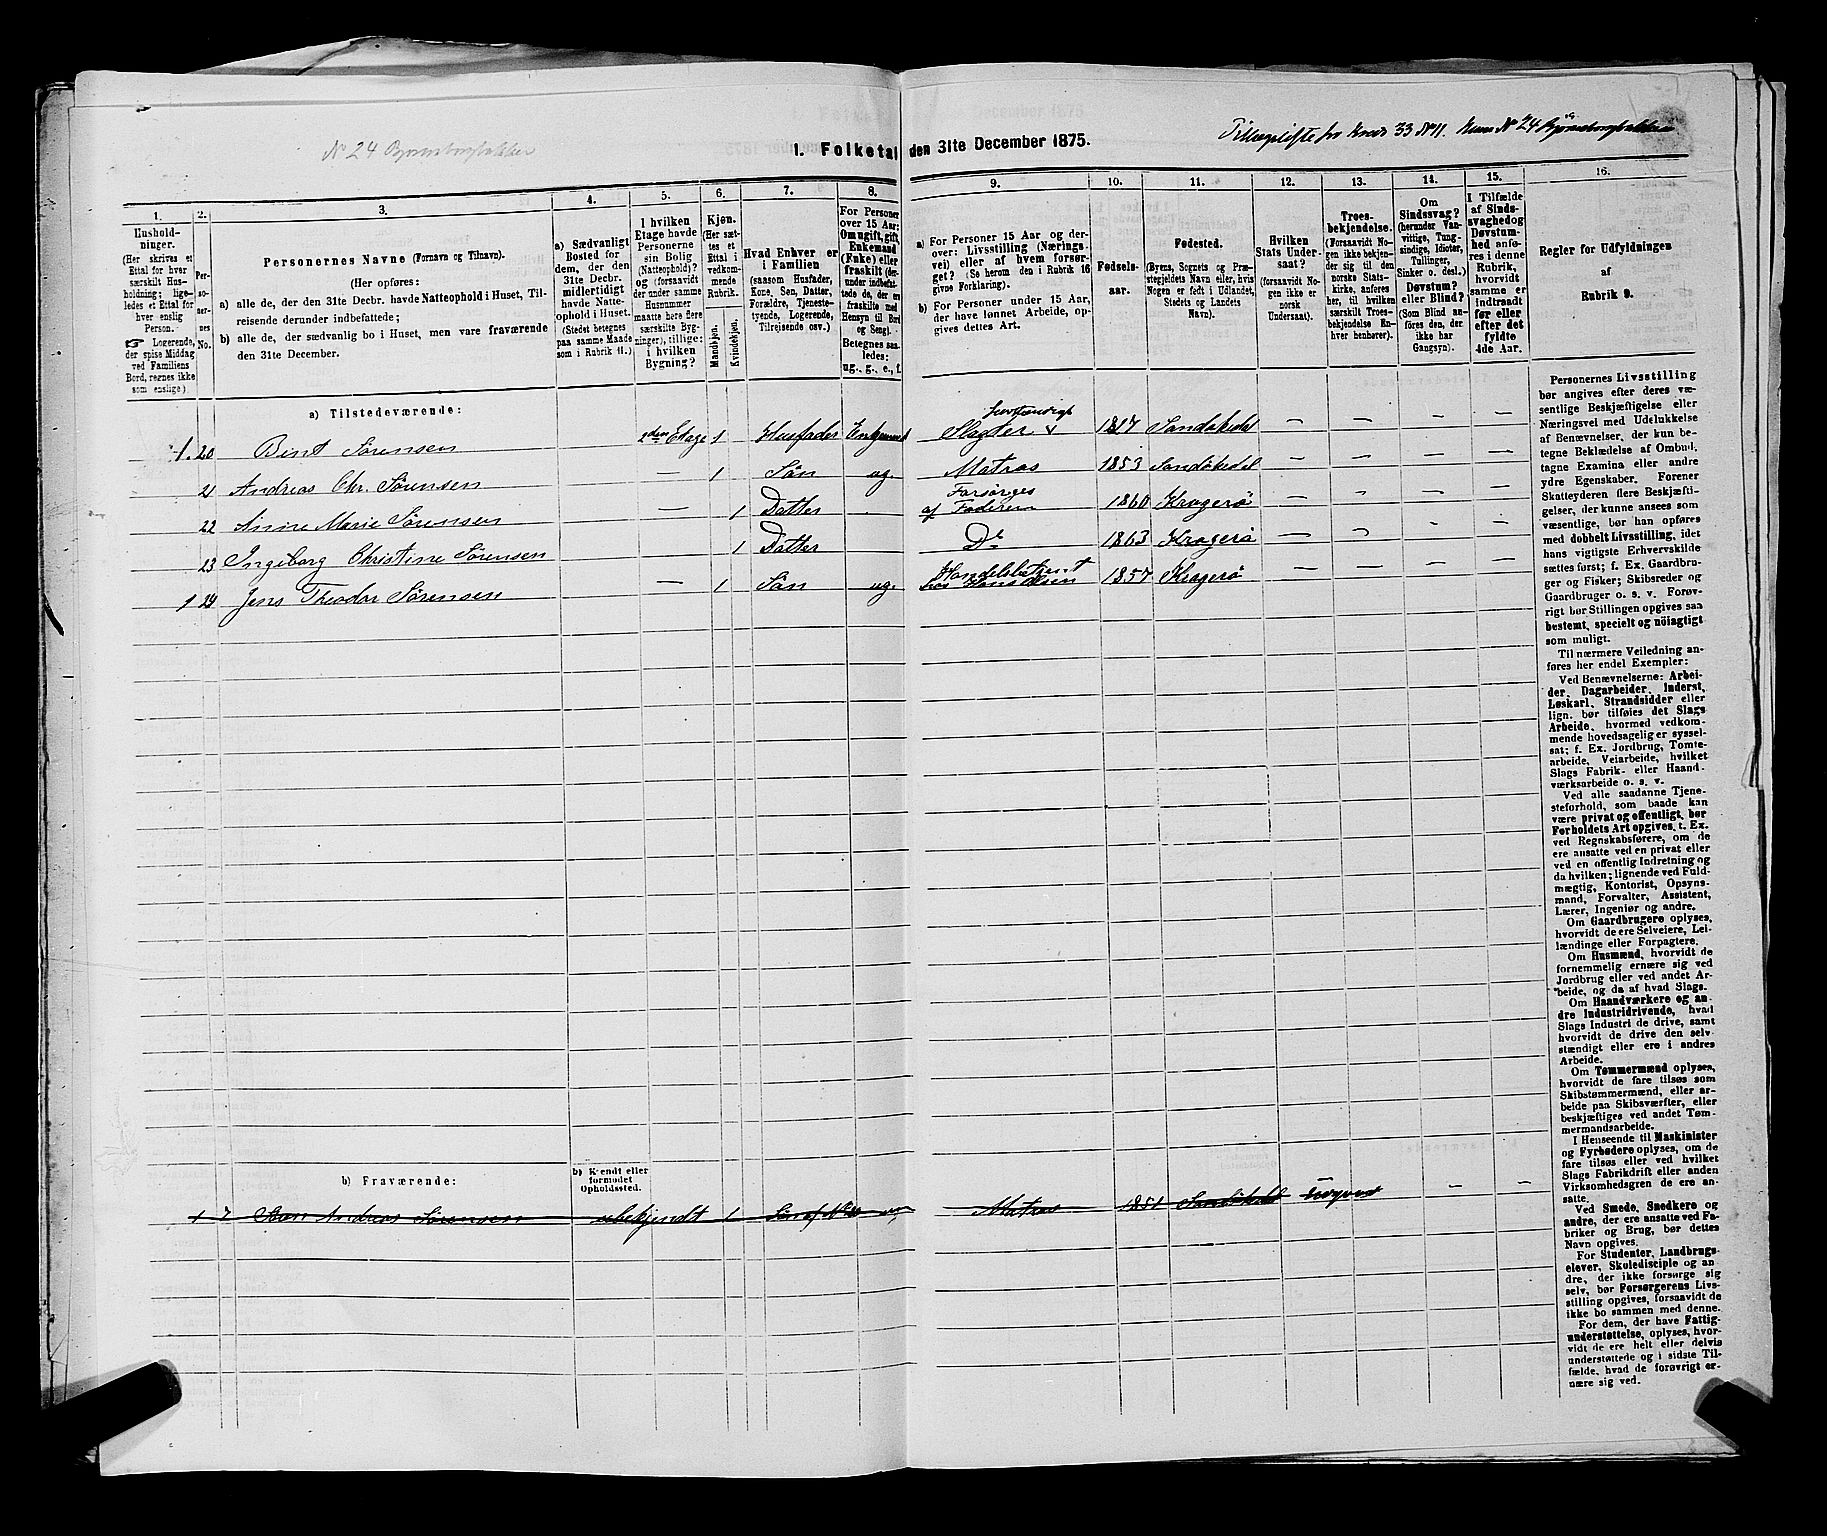 N° 24 Bjørnsborgbakken
1. Folketal den 31te December 1875.
Tillægsliste fra Kreds 33 N° 11. Huus N° 24
1.
Hushold-
ninger.
(Her skrives et
Ettal for hver
særskilt Hus-
holdning; lige-
ledes et Ettal for
hver enslig
Person.
☞ Logerende,
der spise Middag
ved Familiens
Bord, regnes ikke
som enslige.)
2.
Per-
so-
ner-
nes
No.
3.
Personernes Navne (Fornavn og Tilnavn).
(Her opføres:
a) alle de, der den 31te Decbr. havde Natteophold i Huset, Til-
reisende derunder indbefattede;
b) alle de, der sædvanlig bo i Huset, men vare fraværende
den 31te December.
4.
a) Sædvanligt
Bosted for
dem, der den
31te Decbr.
midlertidigt
havde Natte-
ophold i Huset.
(Stedet betegnes
paa samme Maade
som i Rubrik 11.)
5.
I hvilken
Etage havde
Personerne
sin Bolig
(Natteophold)?
og (forsaavidt
der under samme
Husnummer
maatte høre flere
særskilte Byg-
ninger), tillige:
i hvilken
Bygning?
6.
Kjøn.
(Her sæt-
tes et
Ettal i
vedkom-
mende
Rubrik.
Mandkjøn.
Kvindekjøn.
7.
Hvad Enhver er
i Familien
(saasom Husfader,
Kone, Søn, Datter,
Forældre, Tjeneste-
tyende, Logerende,
Tilreisende osv.)
8.
For Personer
over 15 Aar:
Om ugift, gift,
Enkemand
(Enke) eller
fraskilt (der-
under indbefat-
tede de, der ere
fraskilte med
Hensyn til Bord
og Seng).
Betegnes saa-
ledes:
ug., g., e., f.
9.
a) For Personer 15 Aar og der-
over: Livsstilling (Nærings-
vei) eller af hvem forsør-
get? (Se herom den i Rubrik 16
givne Forklaring).
b) For Personer under 15 Aar,
der have lønnet Arbeide, op-
gives dettes Art.
10.
Fødsels-
aar.
11.
Fødested.
(Byens, Sognets og Præ-
stegjeldets Navn eller, hvis
Nogen er født i Udlandet,
Stedets og Landets
Navn).
12.
Hvilken
Stats Under-
saat?
(forsaavidt No-
gen ikke er
norsk
Undersaat).
13.
Troes-
bekjendelse.
(Forsaavidt No-
gen ikke bekjen-
der sig til den
norske Stats-
kirke, anføres
her, til hvilken
særskilt Troes-
bekjendelse En-
hver henhører).
14.
Om
Sindssvag?
(herunder Van-
vittige, Tung-
sindige, Idioter,
Tullinger,
Sinker o. desl.)
Døvstum?
eller Blind?
(Som Blind an-
føres den, der
ikke har
Gangsyn).
15.
I Tilfælde
af Sinds-
svaghed og
Døvstum-
hed anfø-
res i denne
Rubrik,
hvorvidt
samme er
indtraadt
før eller
efter det
fyldte
4de Aar.
16.
Regler for Udfyldningen
af
Rubrik 9.
a) Tilstedeværende:
1. 20 Bent Sørensen 2den Etage 1 Husfader Enkemand Slagter selvstændigt 1817 Sandøkedal — — — —
21 Andreas Chr. Sørensen — 1 Søn ug. Matros 1853 Sandøkedel — — — —
22 Anne Marie Sørensen — 1 Datter Forsørges af Faderen 1860 Kragerø — — — —
23 Ingeborg Christine Sørensen 1 Datter D° 1863 Kragerø — — — —
1 24 Jens Theodor Sørensen — 1 Søn ug. Handelsbetjent hos Hans Olsen 1857 Kragerø — — — —
b) Fraværende:
b) Kjendt eller
formodet
Opholdssted.
1 7 Andreas Sørensen ubekjendt 1 Søn af N° 20 ug. Matros 1851 Sandøkedal — —
Personernes Livsstilling
bør angives efter deres væ-
sentlige Beskjæftigelse eller
Næringsvei med Udelukkelse
af Benævnelser, der kun be-
tegne Beklædelse af Ombud,
tagne Examina eller andre
ydre Egenskaber. Forener
Skatteyderen flere Beskjæfti-
gelser, der kunne ansees som
væsentlige, bør han opføres
med dobbelt Livsstilling, idet
hans vigtigste Erhvervskilde
sættes først; f. Ex. Gaardbru-
ger og Fisker; Skibsreder og
Gaardbruger o. s. v. Forøv-
rigt bør Stillingen opgives saa
bestemt, specielt og nöiagtigt
som muligt.
Til nærmere Veiledning an-
føres her endel Exempler:
Ved Benævnelserne: Arbei-
der, Dagarbeider, Inderst,
Løskarl, Strandsidder eller
lign. bør tilføies det Slags
Arbeide, hvormed vedkom-
mende hovedsagelig er syssel-
sat; f. Ex. Jordbrug, Tomte-
arbeide, Veiarbeide, hvilket
Slags Fabrik- eller Haand-
værksarbeide o. s. v.
Ved alle saadanne Tjene-
steforhold, som baade kan
være privat og offentligt, bør
Forholdets Art opgives, t. Ex.
ved Regnskabsførere, om de
ere ansatte ved en privat eller
ved en offentlig Indretning og
da hvilken; lignende ved Fuld-
mægtig, Kontorist, Opsyns-
mand, Forvalter, Assistent,
Lærer, Ingeniør og andre.
Om Gaardbrugere oplyses,
hvorvidt de ere Selveiere, Lei-
lændinge eller Forpagtere.
Om Husmænd, hvorvidt de
fornemmelig ernære sig ved
Jordbrug eller ved andet Ar-
beide, og da af hvad Slags.
Om Haandværkere og an-
dre Industridrivende, hvad
Slags Industri de drive, samt
hvorvidt de drive den selv-
stændigt eller ere i andres
Arbeide.
Om Tømmermænd oplyses,
hvorvidt de fare tilsøs som
Skibstømmermænd, eller ar-
beide paa Skibsværfter, eller
beskjæftiges ved andet Tøm-
mermandsarbeide.
I Henseende til Maskinister
og Fyrbødere oplyses, om de
fare tilsøs eller ved hvilket
Slags Fabrikdrift eller anden
Virksomhedsgren de ere an-
satte.
Ved Smede, Snedkere og
andre, der ere ansatte ved Fa-
briker og Brug, bør dettes
Navn opgives.
For Studenter, Landbrugs-
elever, Skoledisciple og an-
dre, der ikke forsørge sig
selv, bør Forsørgerens Livs-
stilling opgives, forsaavidt de
ikke bo sammen med denne.
For dem, der have Fattig-
understøttelse, oplyses, hvor-
vidt de ere helt eller delvis
understøttede og i sidste Til-
fælde, hvad de forøvrigt er-
nære sig ved.